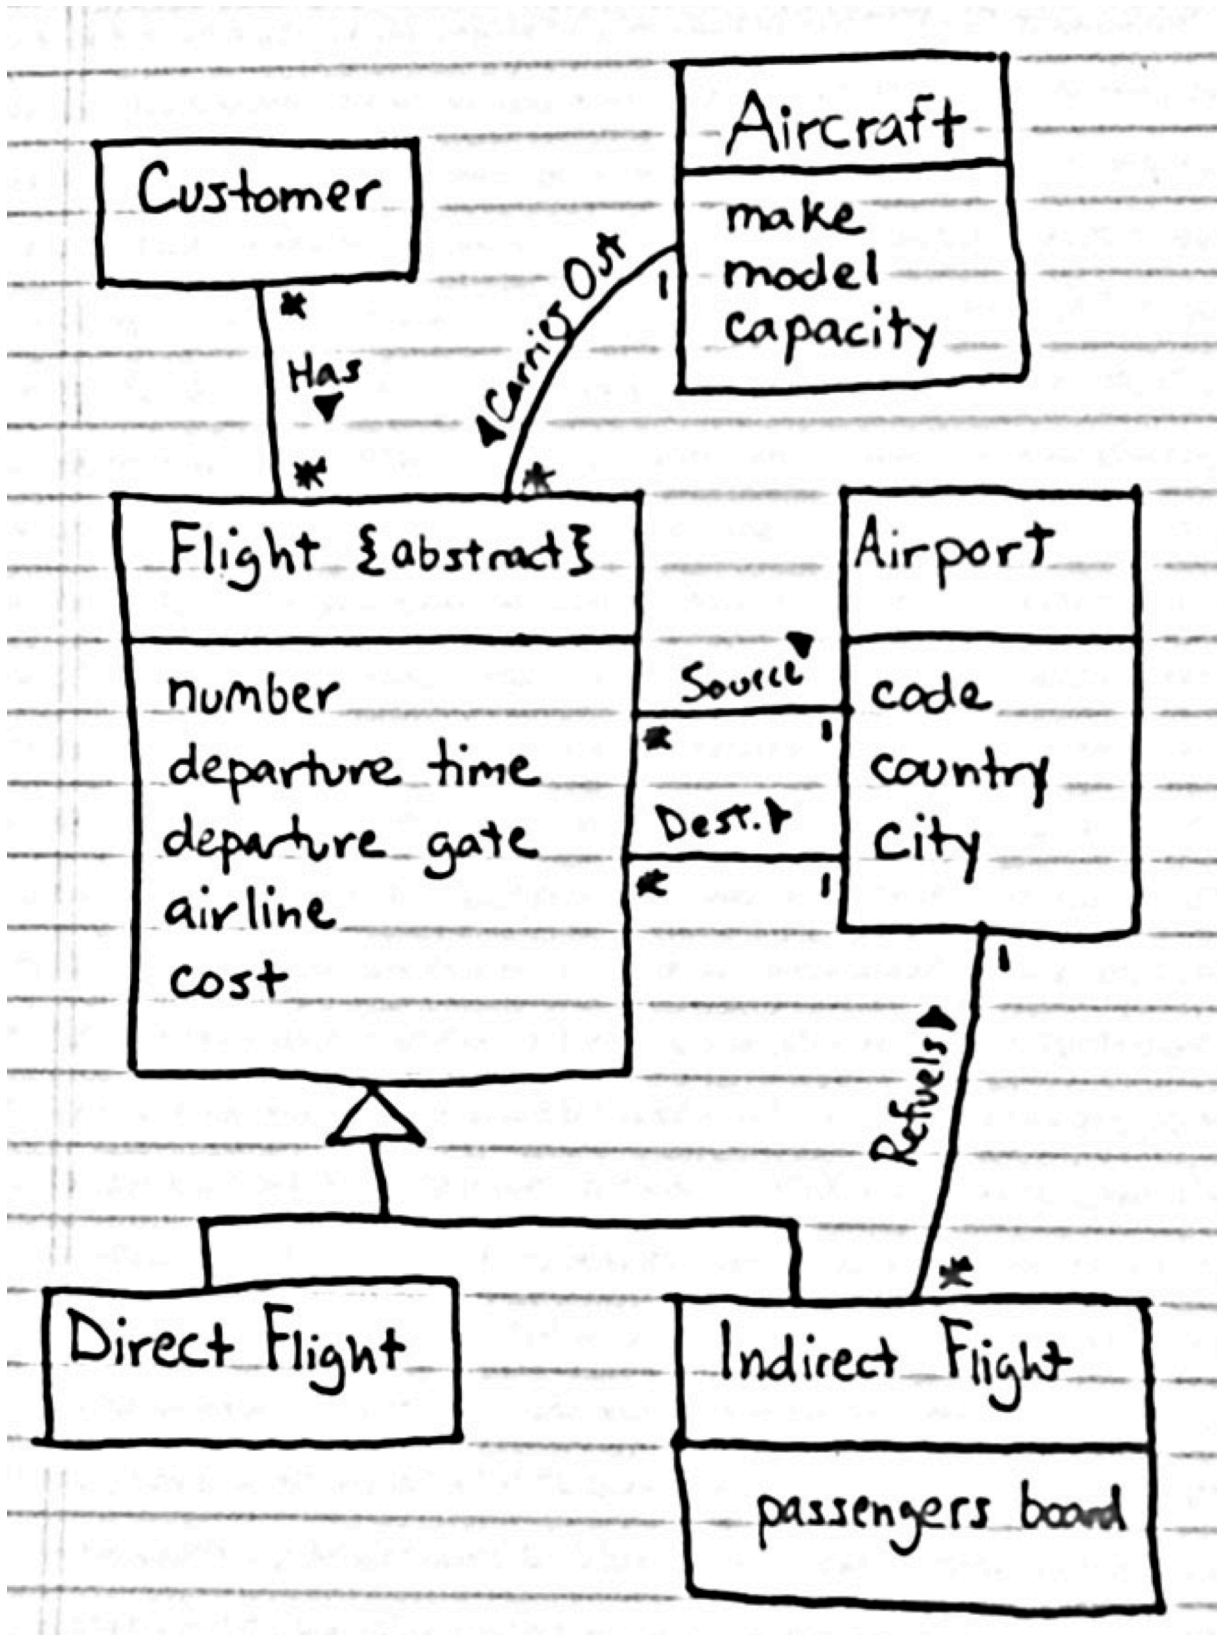 Aircraft
make
model
capacity
Customer
*
Has
*
1
Carries Out
*
Flight {abstract}
number
departure time
departure gate
airline
cost
Airport
code
country
city
Source
*
1
Dest.
*
1
1
Refuels
*
Direct Flight
Indirect Flight
passengers board